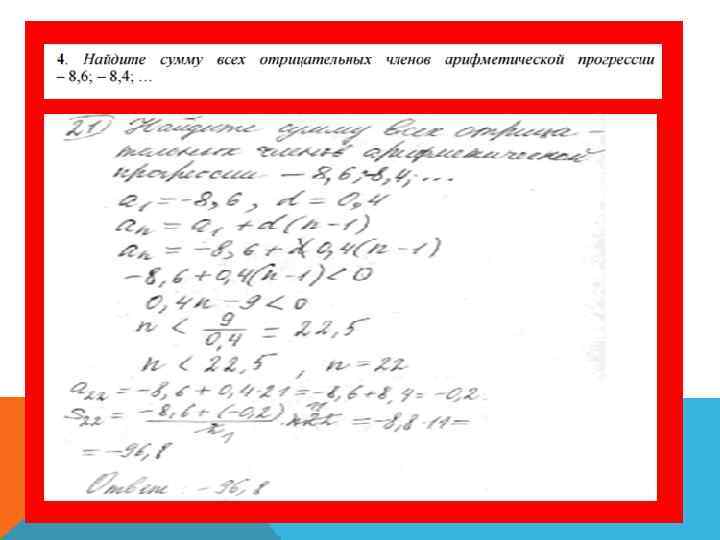 4. Найдите сумму всех отрицательных членов арифметической прогрессии
– 8,6; – 8,4; …
21) Найдите сумму всех отрица-
тельных членов арифметической
прогрессии – 8,6; -8,4; ...
a₁ = -8,6 , d = 0,4
aₙ = a₁ + d(n-1)
aₙ = -8,6 + 0,4(n-1)
-8,6 + 0,4(n-1) < 0
0,4n - 9 < 0
n < 9/0,4 = 22,5
n < 22,5 , n = 22
a₂₂ = -8,6 + 0,4·21 = -8,6 + 8,4 = -0,2.
S₂₂ = (-8,6 + (-0,2))/2 · 22 = -8,8 · 11 =
= -96,8
Ответ: -96,8